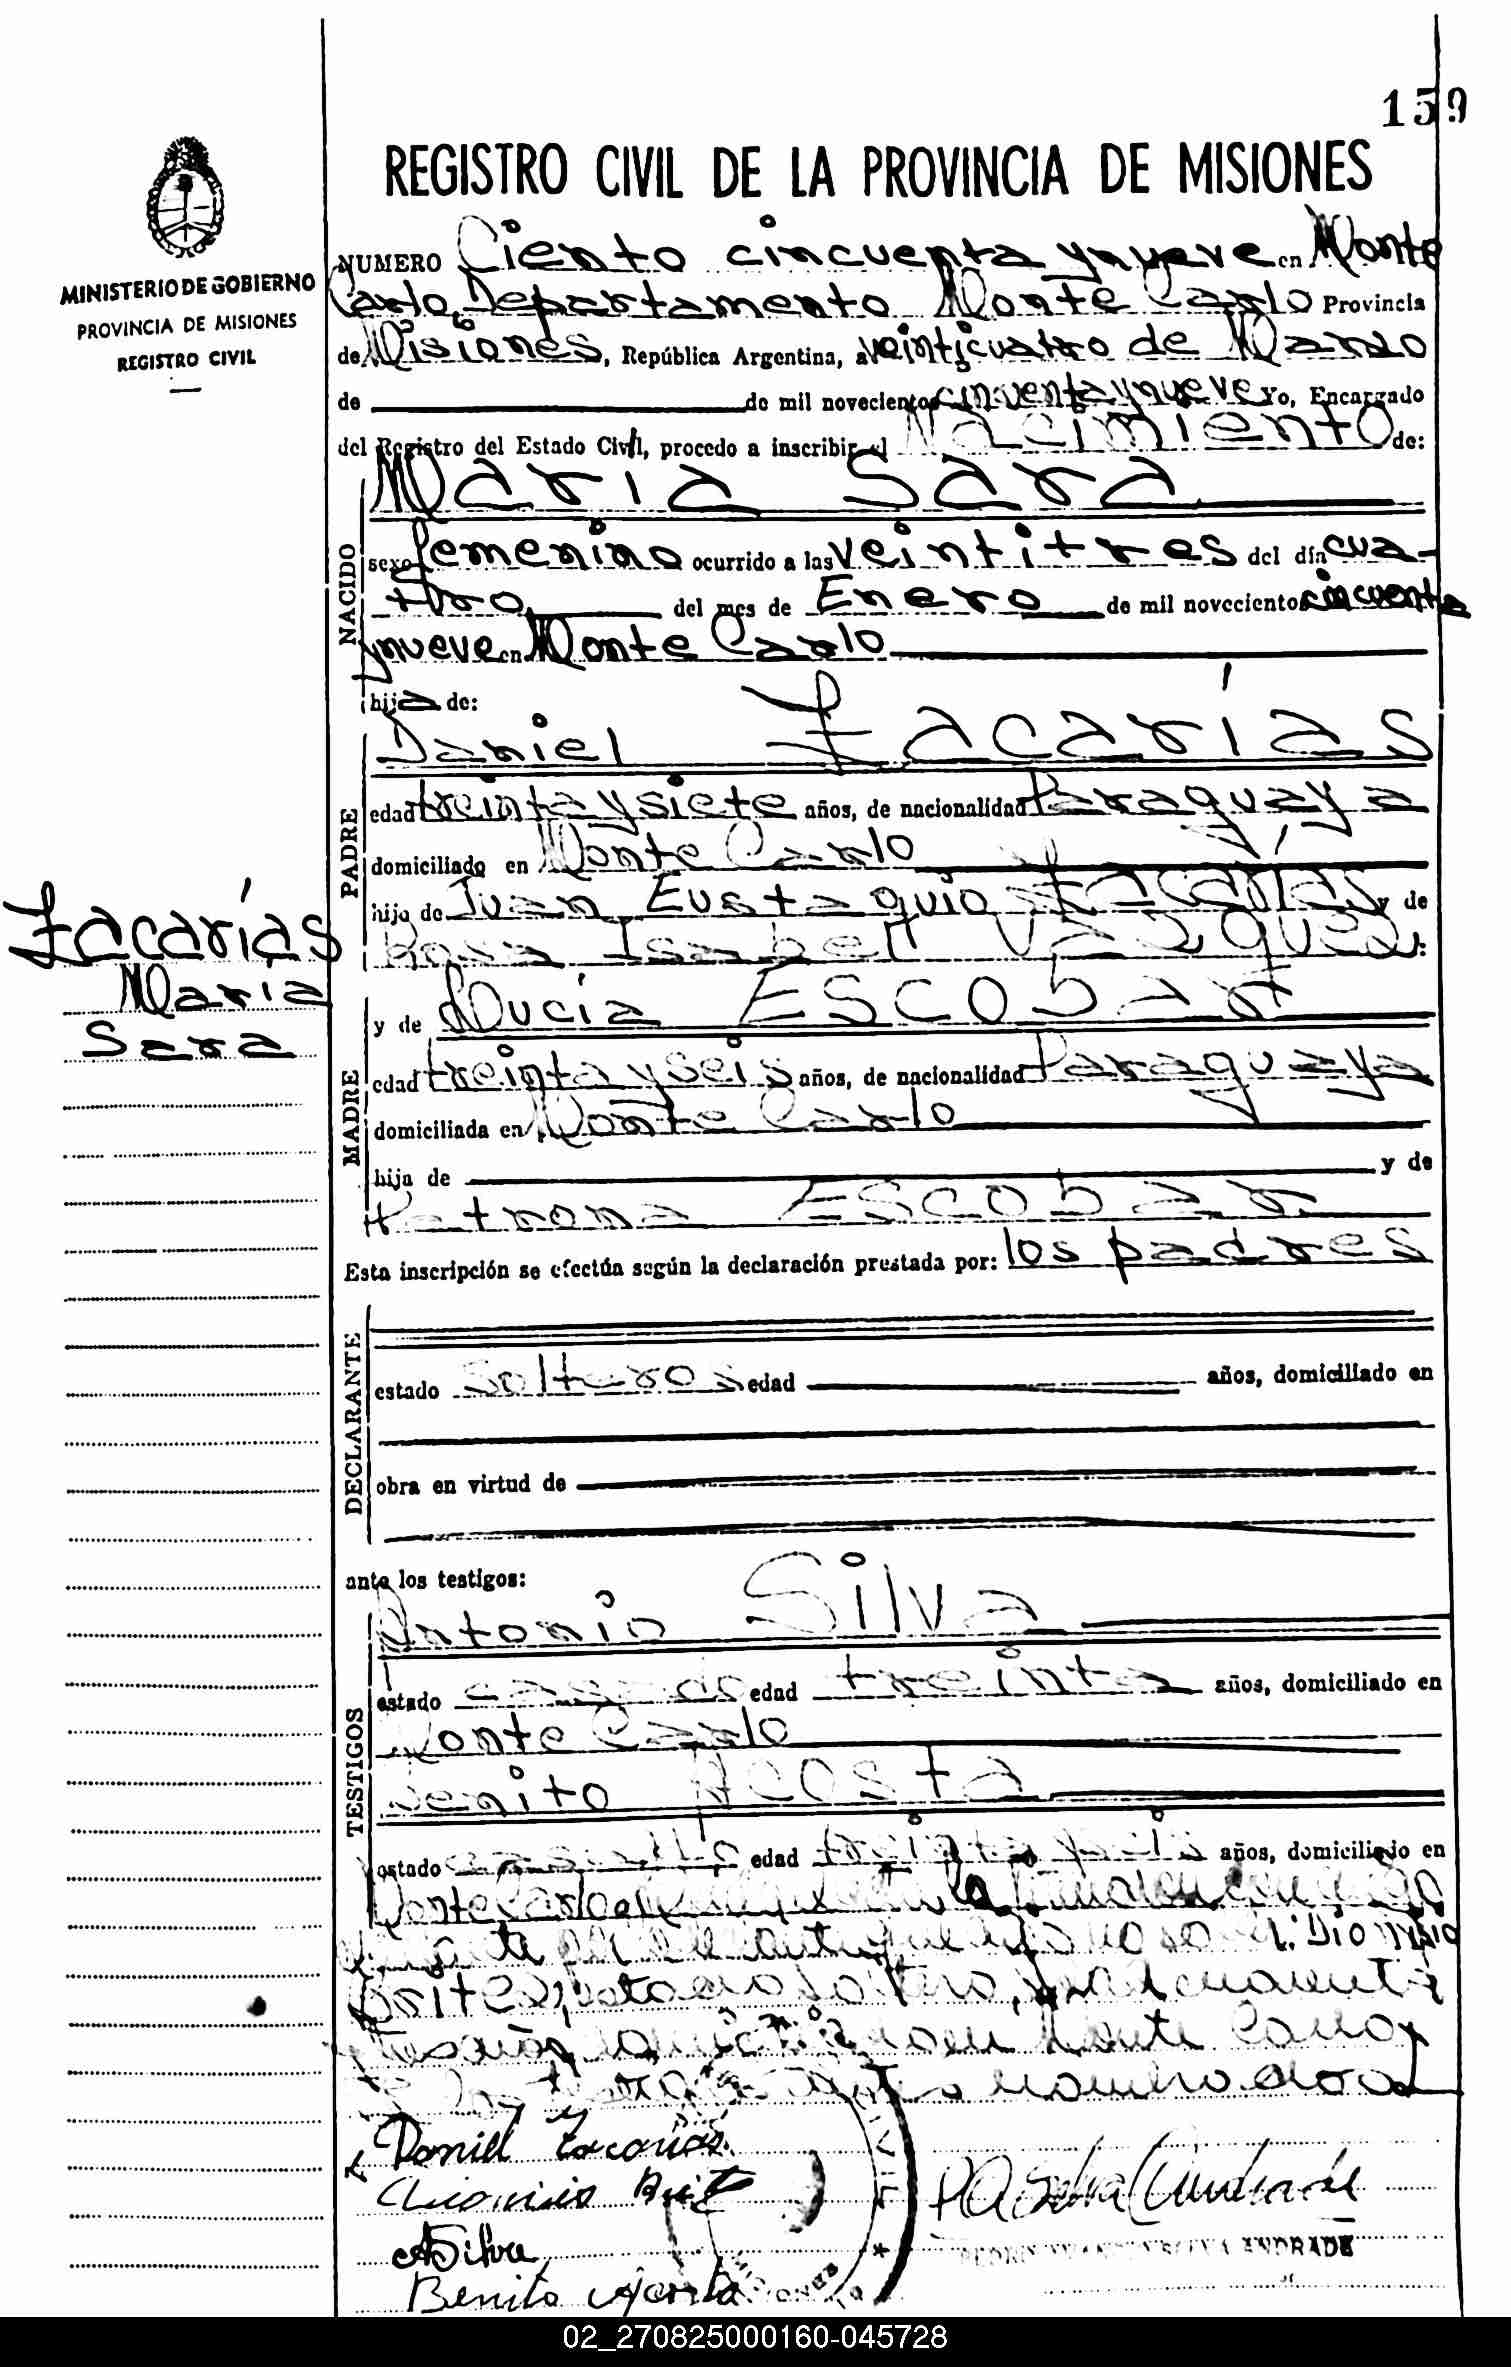 159
REGISTRO CIVIL DE LA PROVINCIA DE MISIONES
MINISTERIO DE GOBIERNO
PROVINCIA DE MISIONES
REGISTRO CIVIL
NUMERO Ciento cincuenta y nueve en Monte
Carlo, Departamento Monte Carlo Provincia
de Misiones, República Argentina, a veinticuatro de Marzo
de de mil novecientos cincuenta y nueve Yo, Encargado
del Registro del Estado Civil, procedo a inscribir el Nacimiento de:
NACIDO
Maria Sara
sexo femenino ocurrido a las veintitres del día cua-
tro del mes de Enero de mil novecientos cincuenta
y nueve en Monte Carlo
hija de:
PADRE
Daniel Zacarías
edad treinta y siete años, de nacionalidad Paraguaya
domiciliado en Monte Carlo
hijo de Juan Eustaquio Zacarías y de
Rosa Isabel Vazquez:
Zacarías
Maria
Sara
MADRE
y de Lucía ESCOBAR
edad treinta y seis años, de nacionalidad Paraguaya
domiciliada en Monte Carlo
hija de y de
Petrona ESCOBAR
Esta inscripción se efectúa según la declaración prestada por: los padres
DECLARANTE
estado solteros edad años, domiciliado en
obra en virtud de
ante los testigos:
TESTIGOS
Antonio Silva
estado casado edad treinta años, domiciliado en
Monte Carlo
Benito Acosta
estado edad treinta y años, domiciliado en
Monte Carlo la
Dionisio
Brites, estado soltero, cuarenta
y tres años domiciliado en Monte Carlo y
nombrados
Daniel Zacarías
Dionisio Brites
A Silva
Benito Acosta
P A Silva Andrade
ANDRADE
MISIONES
02_270825000160-045728